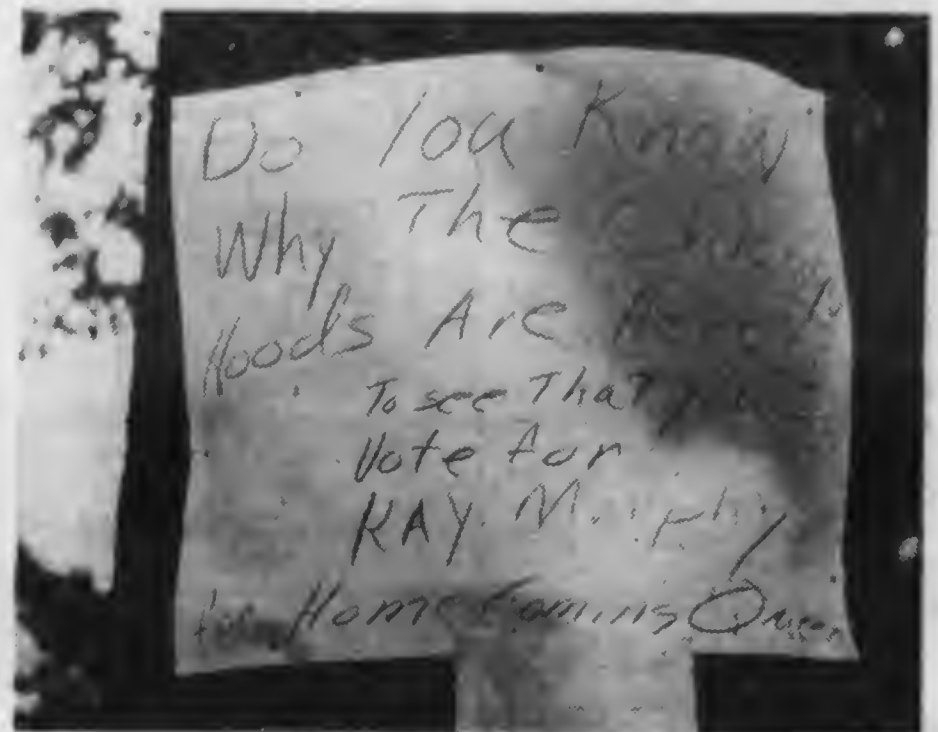 Do You Know
Why The
Hoods Are
To see That
Vote for
KAY Murphy
for HomeComing Queen